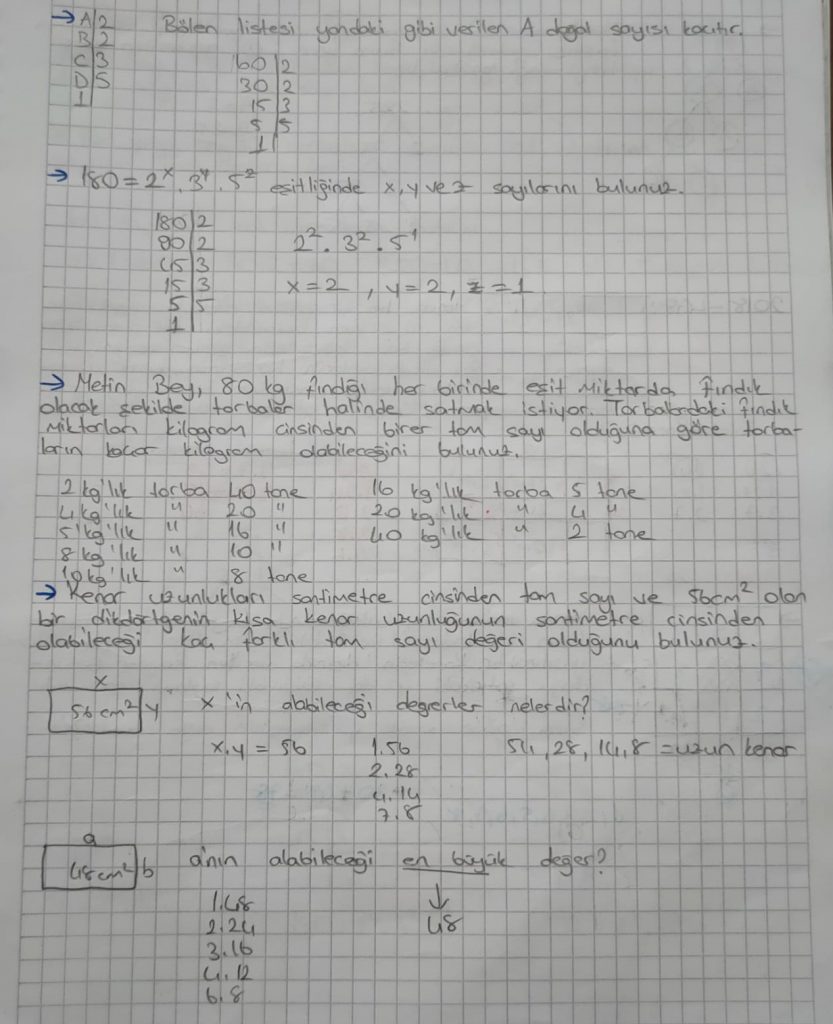 → A|2 Bölen listesi yandaki gibi verilen A doğal sayısı kaçtır.
B|2
C|3
D|5
1|
60|2
30|2
15|3
5|5
1|
→ 180 = 2^x . 3^y . 5^z eşitliğinde x, y ve z sayılarını bulunuz.
180|2
90|2
45|3
15|3
5|5
1|
2² . 3² . 5¹
x = 2 , y = 2, z = 1
→ Metin Bey, 80 kg fındığı her birinde eşit miktarda fındık
olacak şekilde torbalar halinde satmak istiyor. Torbalardaki fındık
miktarları kilogram cinsinden birer tam sayı olduğuna göre torba-
ların kaçar kilogram olabileceğini bulunuz.
2 kg'lık torba 40 tane
4 kg'lık " 20 "
5 kg'lık " 16 "
8 kg'lık " 10 "
10 kg'lık " 8 tane
16 kg'lık torba 5 tane
20 kg'lık " 4 "
40 kg'lık " 2 tane
→ Kenar uzunlukları santimetre cinsinden tam sayı ve 56cm² olan
bir dikdörtgenin kısa kenar uzunluğunun santimetre cinsinden
olabileceği kaç farklı tam sayı değeri olduğunu bulunuz.
x
56 cm² y x'in alabileceği değerler nelerdir?
x.y = 56
1.56
2.28
4.14
7.8
54, 28, 14, 8 = uzun kenar
a
48cm² b a'nın alabileceği en büyük değer?
↓
48
1.48
2.24
3.16
4.12
6.8